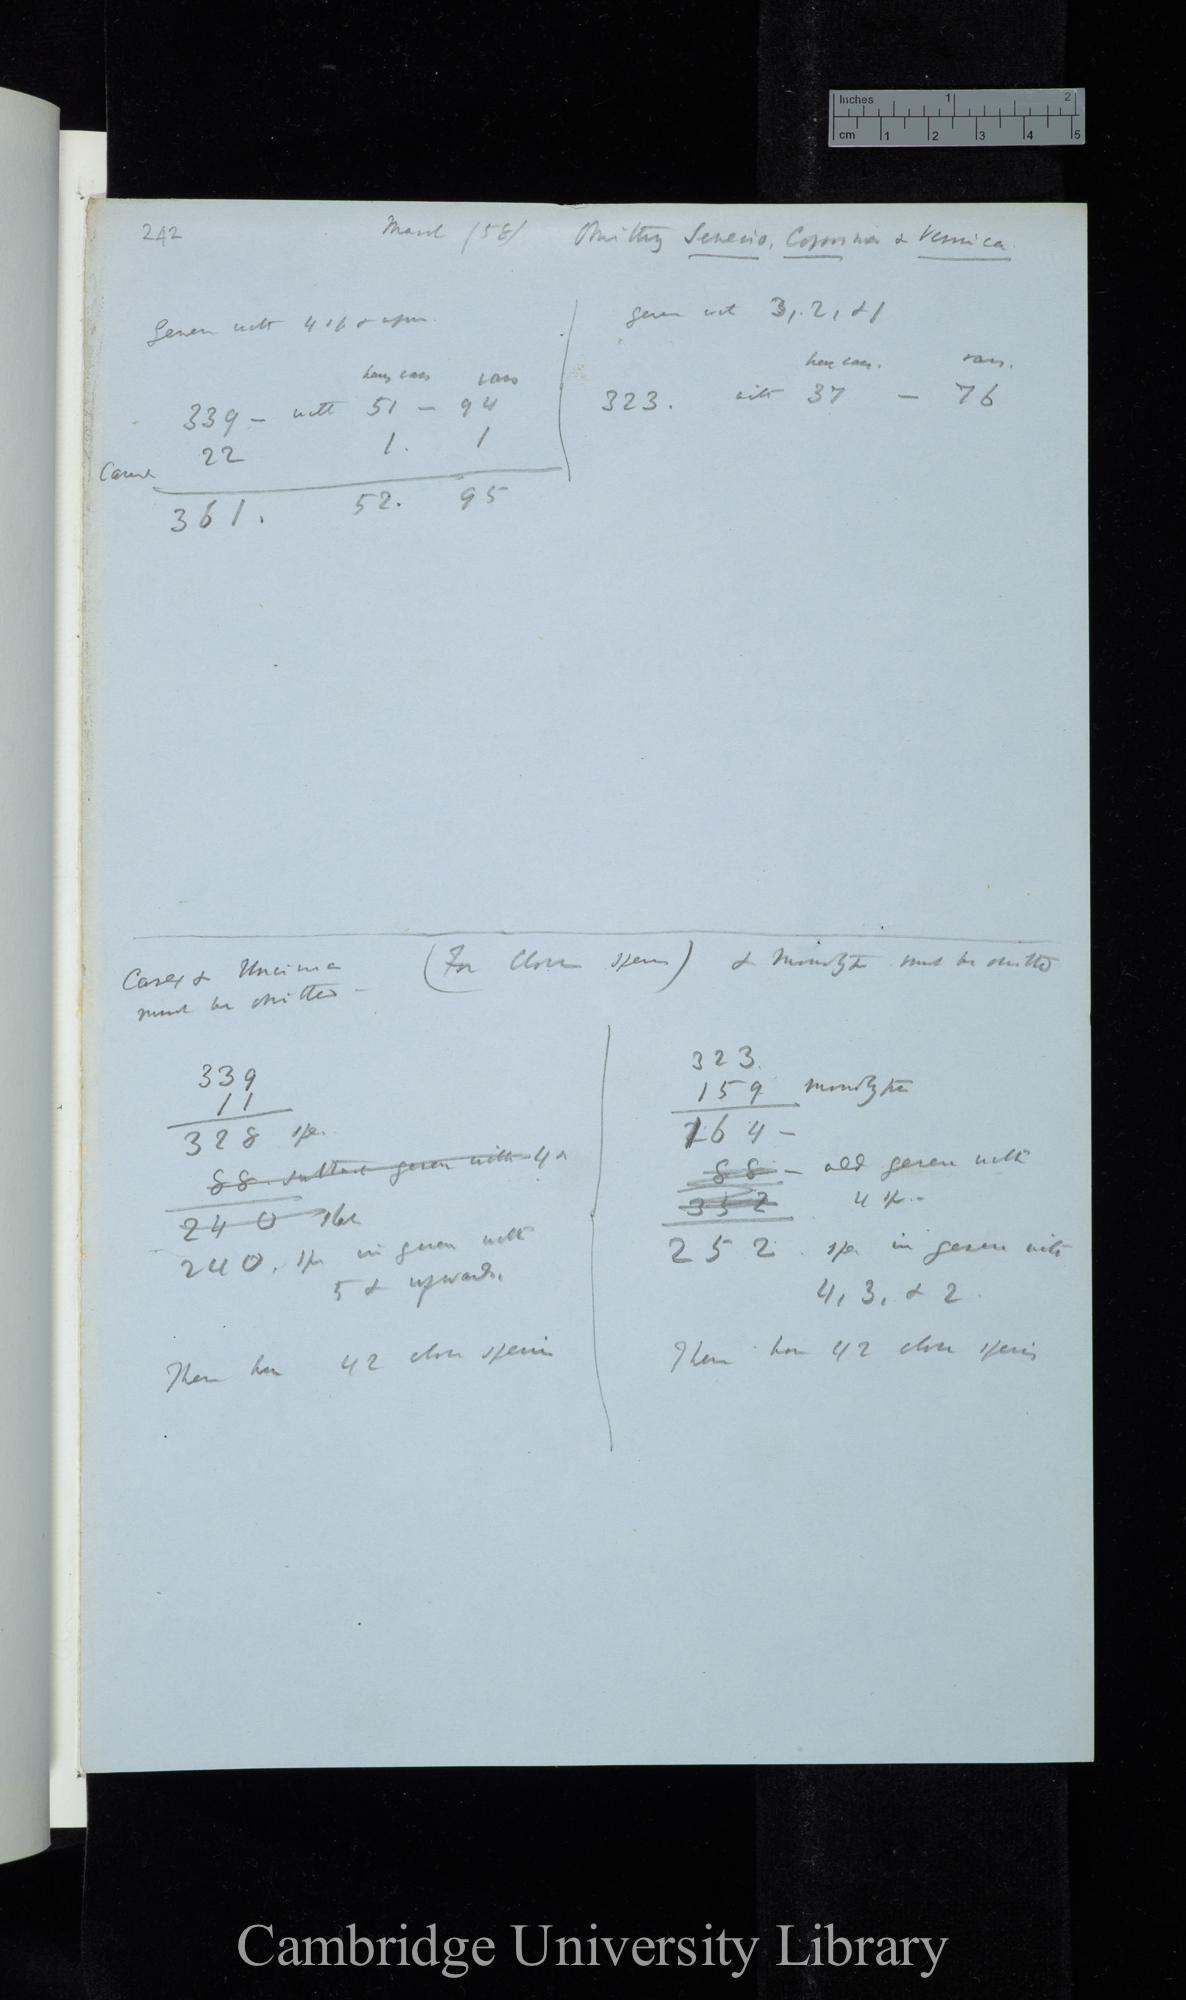 Inches 1 2
cm 1 2 3 4 5
242 March /58/ Omitting Senecio, Coprosma & Veronica.
Genera with 4 sp & upw. genera with 3, 2, & 1
having vars vars having vars. vars.
339 – with 51 – 94 323. with 37 – 76
22 1. 1
361. 52. 95
Carex & Uncinia (For Close species) & Monotyps must be omitted
must be omitted –
339 323.
11 159 monotyps
328 spe. 164 –
88. subtract genera with 4 88 – add genera with
240 352 4 sp. –
240. sp in genera with 252. spe in genera with
5 & upwards. 4, 3, & 2.
These have 42 close species These have 42 close species
Cambridge University Library